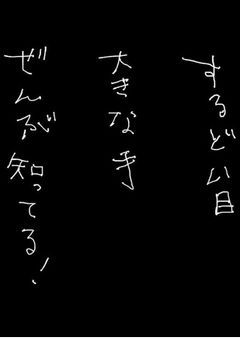 するどい目
大きな手
ぜんぶ知ってる!